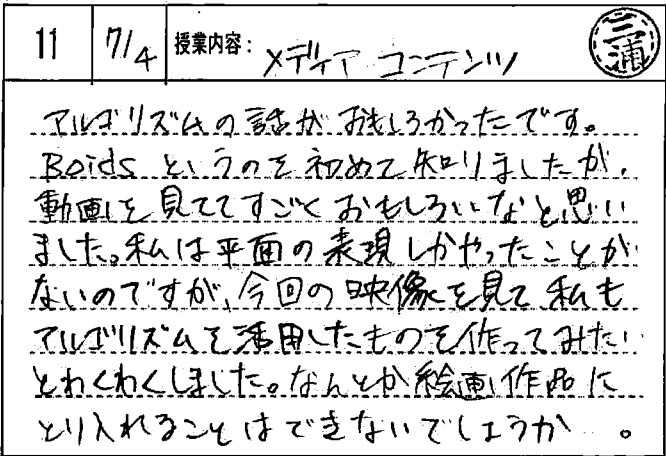 11 7/4 授業内容: メディア コンテンツ 三浦
アルゴリズムの話がおもしろかったです。
Boids というのを初めて知りましたが、
動画を見ててすごくおもしろいなと思い
ました。私は平面の表現しかやったことが
ないのですが、今回の映像を見て私も
アルゴリズムを活用したものを作ってみたい
とわくわくしました。なんとか絵画作品に
とり入れることはできないでしょうか…。